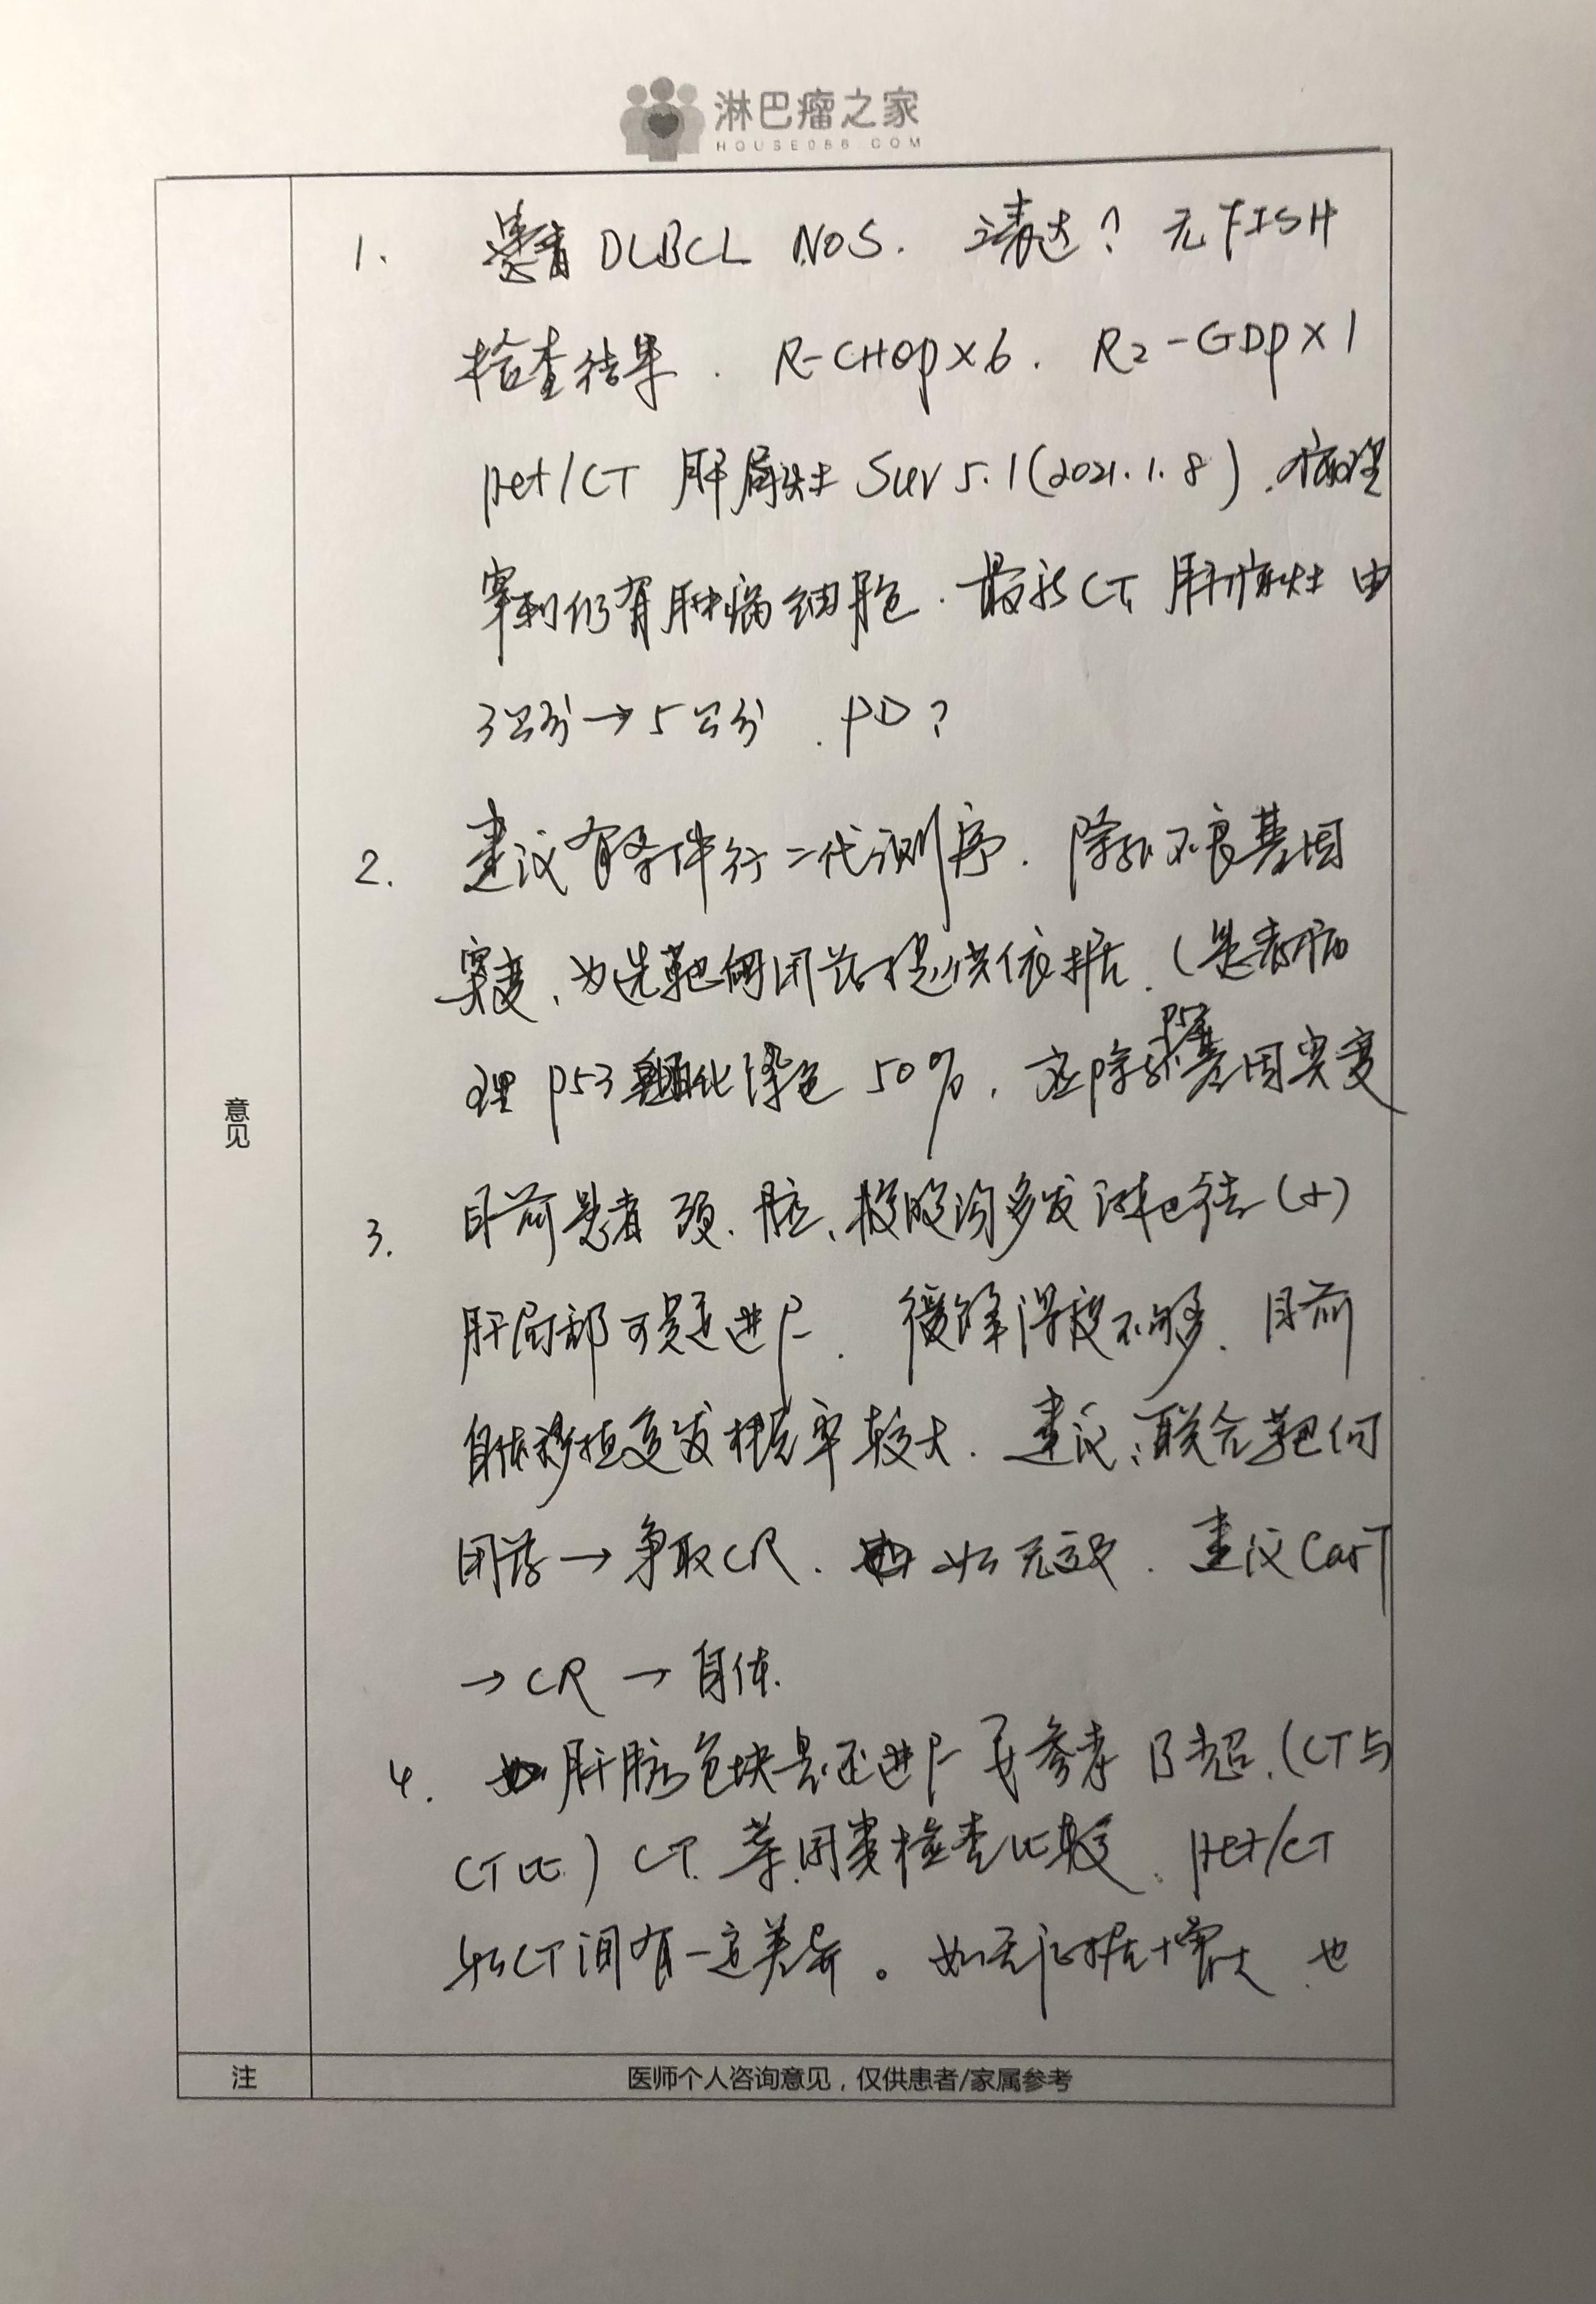 淋巴瘤之家
HOUSE086.COM
1. 患者 DLBCL NOS. 表达? 无FISH
检查结果. R-CHOP×6. R2-GDP×1
pet/CT 肝病灶 SUV 5.1(2021.1.8). 病理
穿刺仍有肿瘤细胞. 最新CT 肝病灶由
3公分→5公分. PD?
2. 建议有条件行二代测序. 除外不良基因
突变、为选靶向用药提供依据. (患者病
理 p53 染色 50%, 应除外p53基因突变
3. 目前患者 颈. 腋、腹股沟多发淋巴结(+)
肝局部可疑进户. 缓解深度不够. 目前
自体移植复发概率较大. 建议:联合靶向
用药→争取CR. 如无效. 建议CarT
→CR→自体.
4. 肝脏包块是否进户 要参考 B超.(CT与
CT比) CT 等同类检查比较. pet/CT
与CT间有一定差异。如无证据增大 也
意见
注
医师个人咨询意见，仅供患者/家属参考